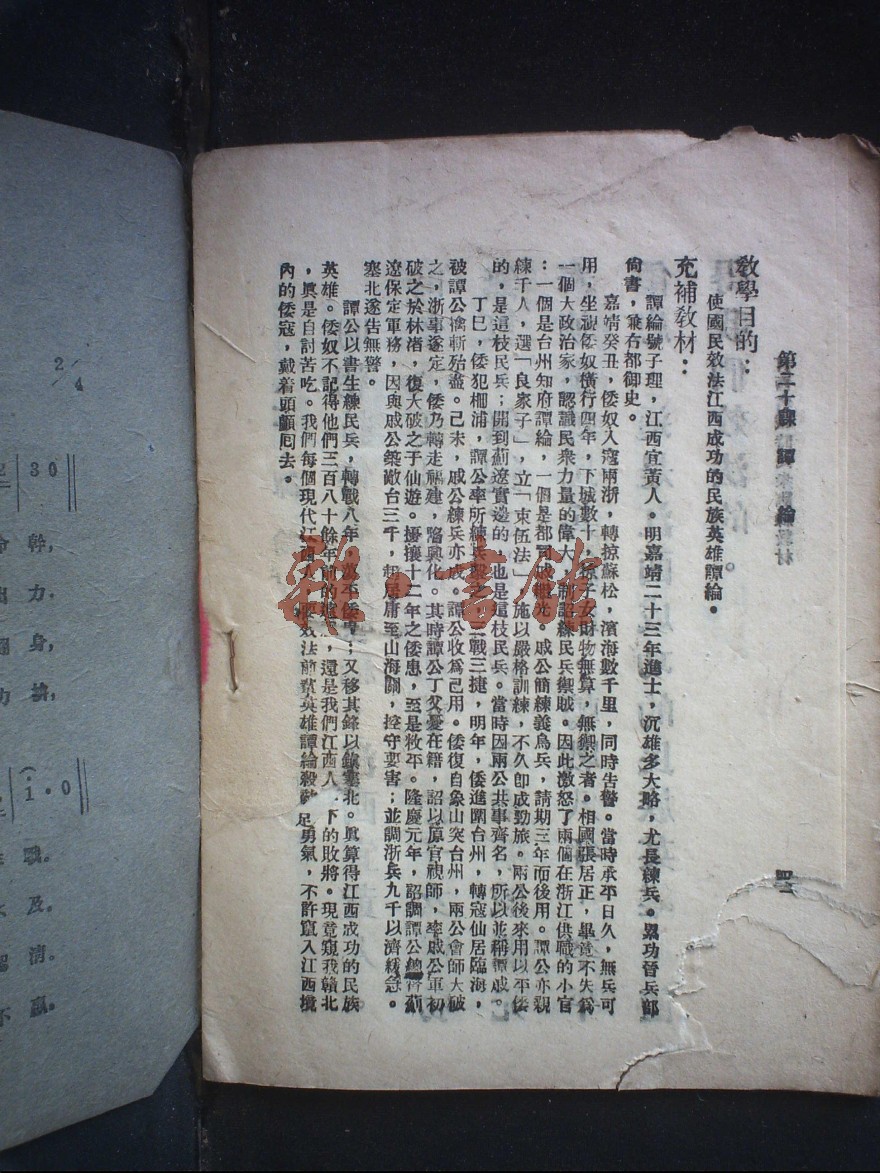 第三十課 譚 綸
教學目的：
使國民效法江西成功的民族英雄譚綸。
充補敎材：
譚綸號子理，江西宜黃人。明嘉靖二十三年進士，沉雄多大略，尤長練兵。累功晉兵部
尙書，兼右都御史。
嘉靖癸丑，倭奴入寇兩浙，轉掠蘇松，濱海數千里，同時告警。當時承平日久，無兵可
用，坐視倭奴橫行四年，下城數十，掠子女財物無算，無禦之者。相國張居正，畢竟不失爲
一個大政治家，認識民衆力量的偉大，制詔練民兵禦賊。因此激怒了兩個在浙江供職的小官
：一個是台州知府譚綸，一個是都司戚繼光。戚公簡練義烏兵，請期三年而後用。譚公亦親
練千人，選「良家子」，立「束伍法」，施以嚴格訓練，不久卽成勁旅。兩公後來用以平倭
的，是這枝民兵；開到薊遼實邊的，也是這枝民兵。當時因兩公共事齊名，所以並稱譚戚。
丁巳，倭犯栅浦，譚公率所練兵擊之，三戰三捷，明年，倭進圍台州，轉寇仙居臨海，
被譚公擒斬殆盡。己未，戚公練兵亦成。譚公收爲己用。倭復自象山突台州，兩公會師大破
之，浙事遂定，倭乃轉走福建，陷興化。其時譚公丁父憂在籍，詔以原官視師，率戚公軍初
破之於林渚，復大破之于仙遊。擾攘十二年之倭患，至是敉平。隆慶元年，詔調譚公總督薊
遼保定軍務，因與戚公築敵台三千，起居庸至山海關，控守要害；並調浙兵九千以濟緩急。
塞北遂告無警。
譚公以書生練民兵，轉戰八年，蕩平倭寇；又移其鋒以鎮塞北。眞算得江西成功的民族
英雄。倭奴不記得他們三百八十餘年前的 ，還是我們江西人 下的敗將。現竟窺我贛北
，眞是自討苦吃。我們每個現代江西人，要效法前輩英雄譚綸殺敵 足勇氣，不許竄入江西境
內的倭寇，戴着頭顱囘去。
雜·書館
2/4
30
幹，
力。
身，
1·0
戰。
及。
清。